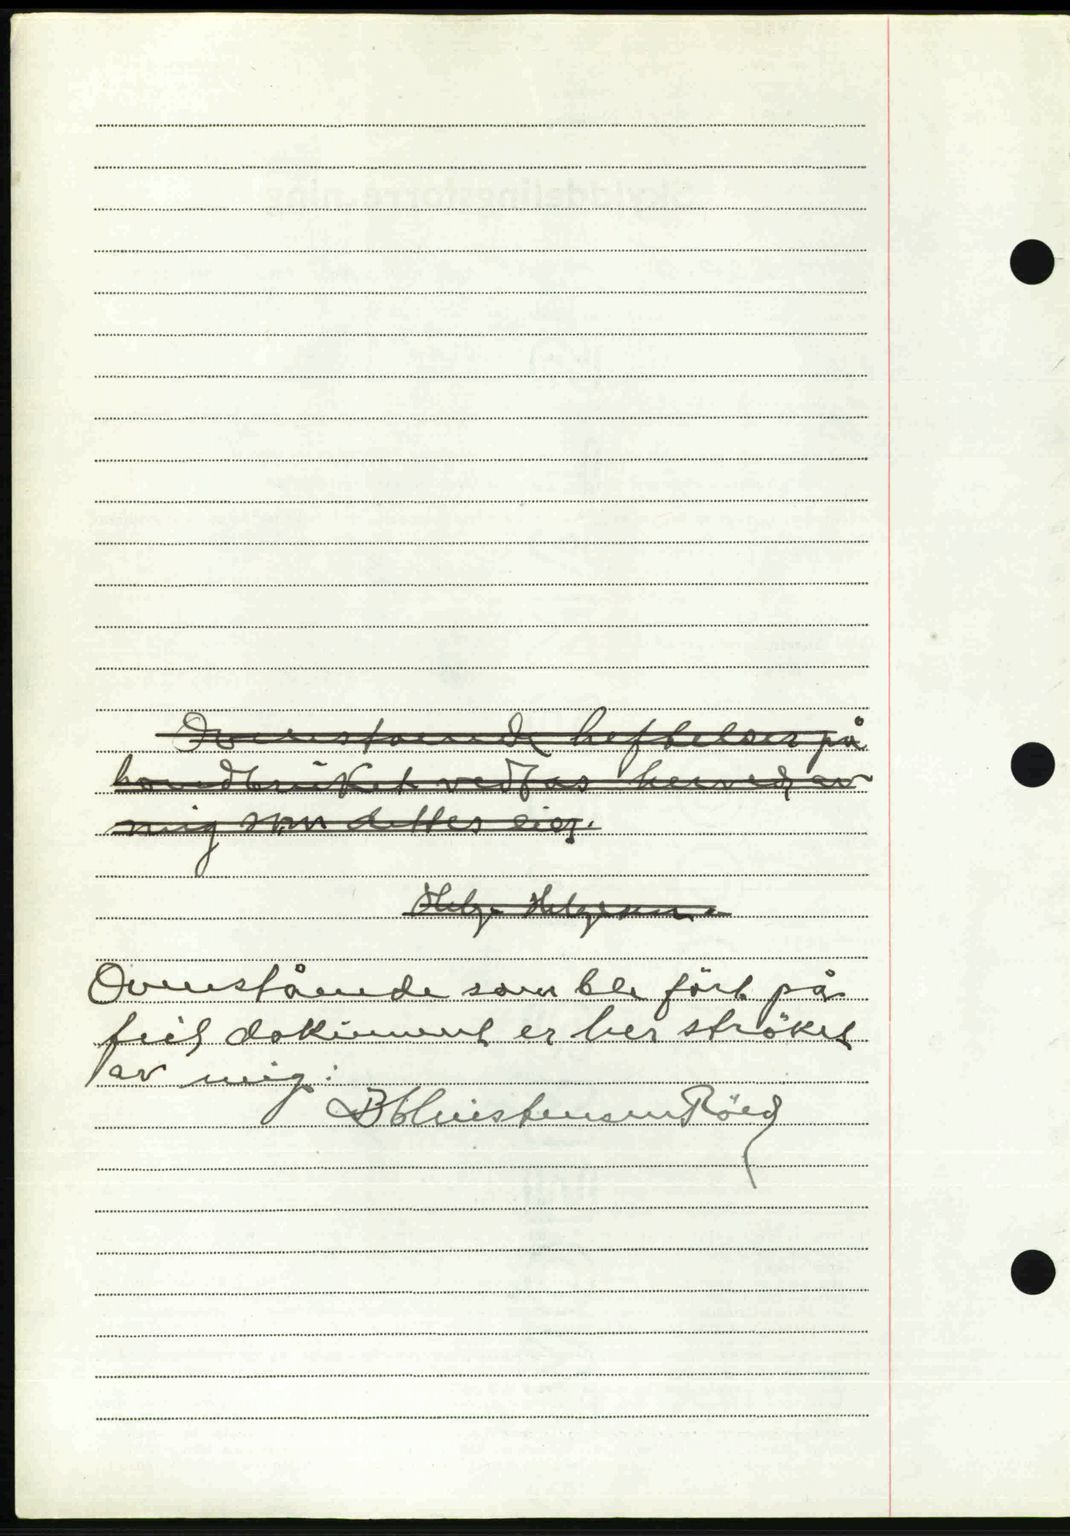 Ovenstaaende heftelser på
hovedbruket vedtas herved av
mig som dettes eier.
Helge Helgesen
Ovenstående som ble fört på
feil dokument er her ströket
av mig:
B Christensen Röed